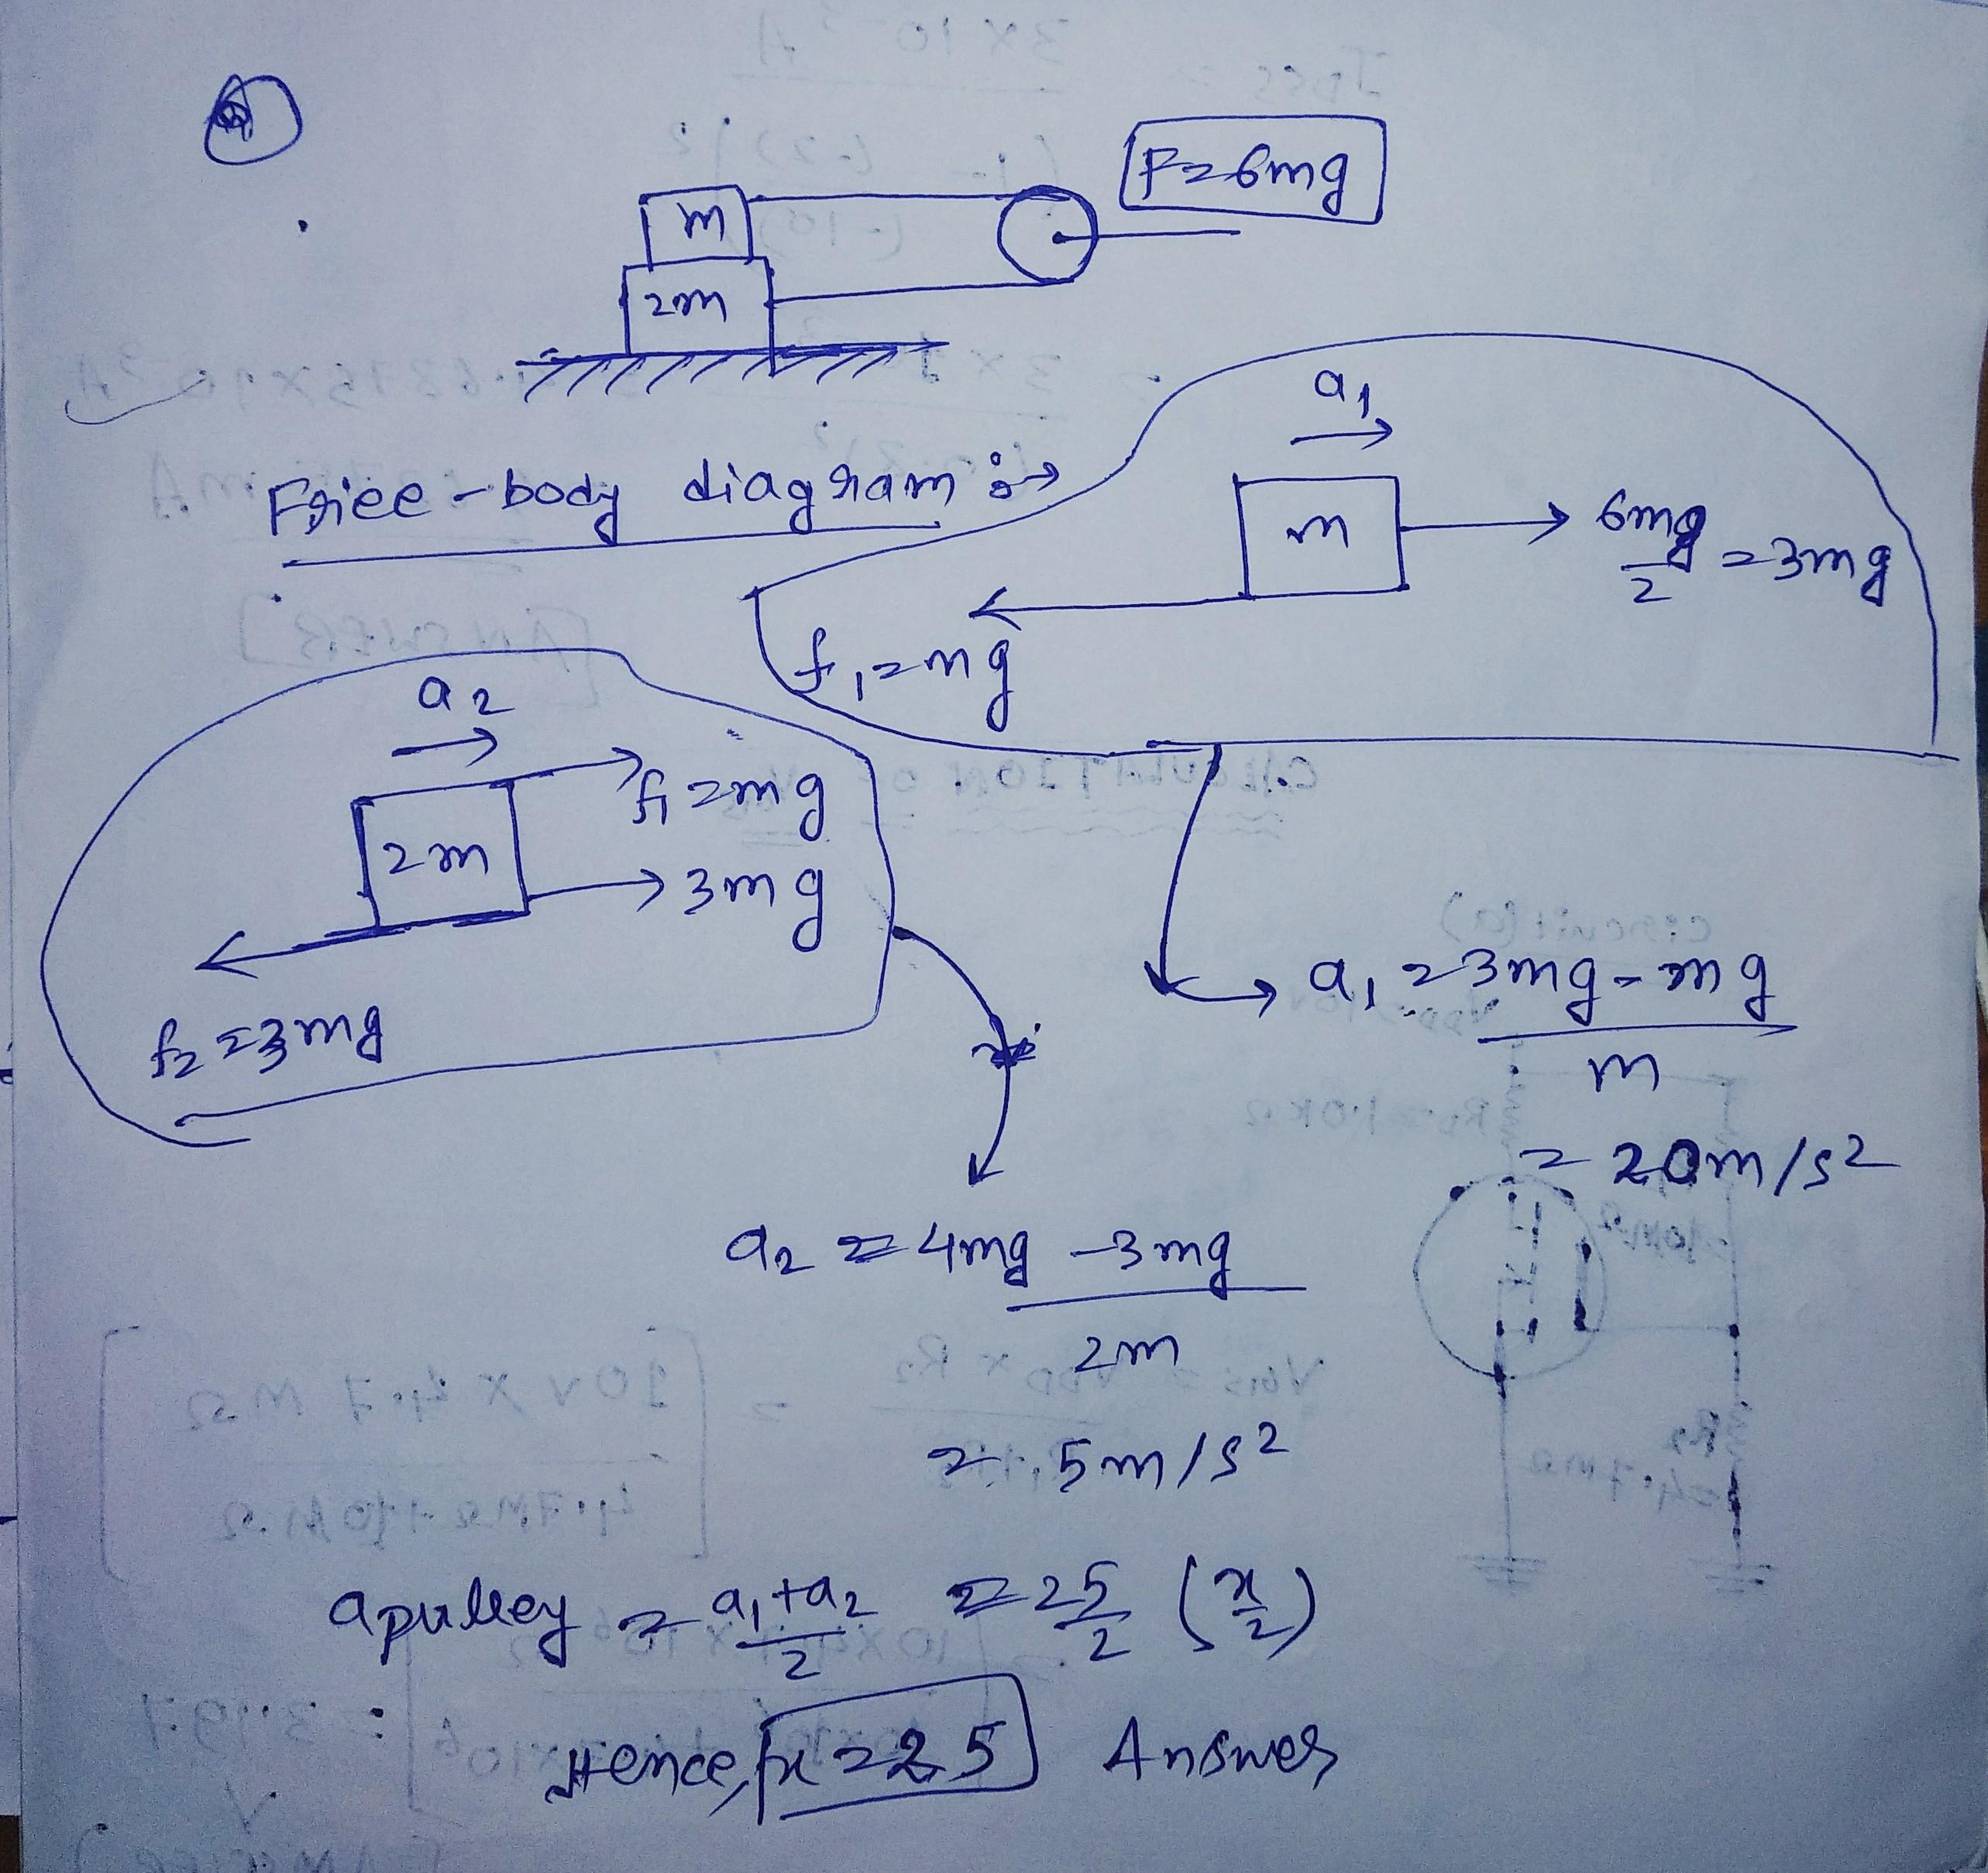 F=6mg
m
2m
Free-body diagram :→
a1
m
6mg/2 = 3mg
f1=mg
a2
f1=mg
2m
3mg
f2=3mg
a1 = 3mg-mg
m
= 20m/s2
a2 = 4mg -3mg
2m
= 5m/s2
apulley = a1+a2/2 = 25/2 (x/2)
Hence, x=25 Answer